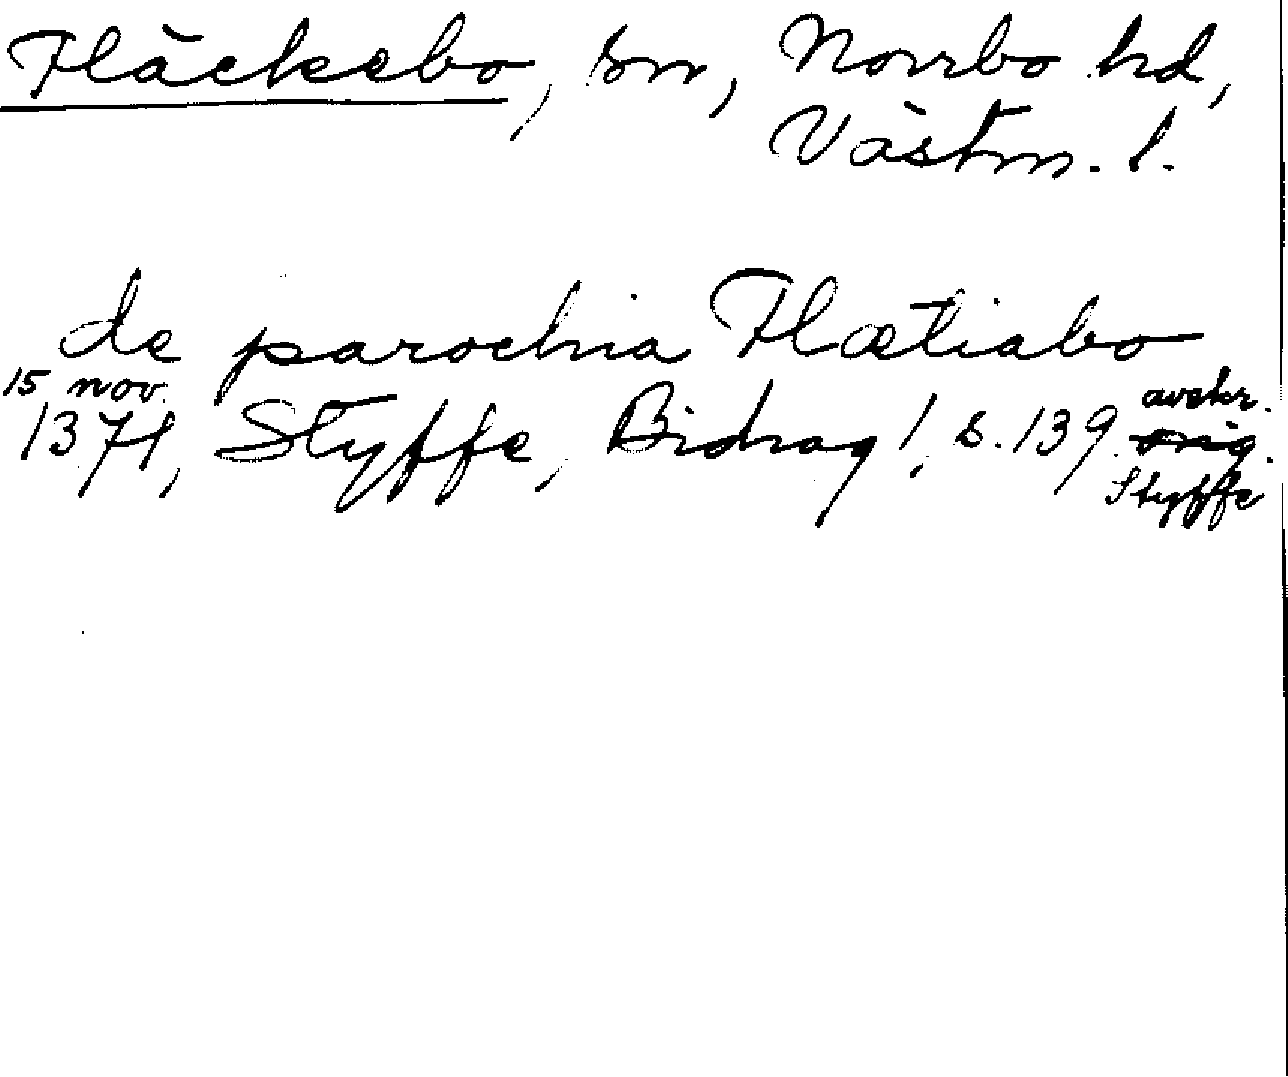 Fläckebo, sn, Norrbo hd,
Västm. l.
de parochia Flætiabo
15 nov.
1371, Styffe, Bidrag 1, s. 139. orig.
avskr.
Styffe